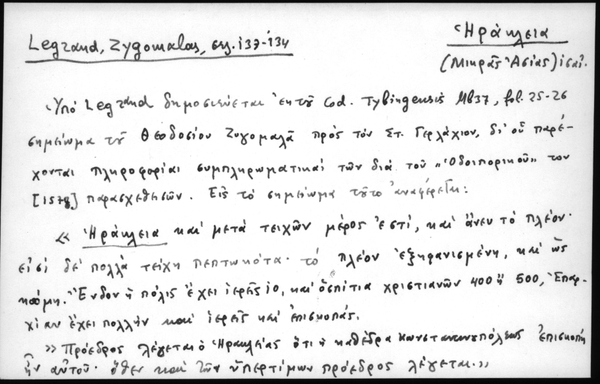 Legrand, Zygomalas, σελ. 137-134
Ἡράκλεια
(Μικρᾶς Ἀσίας)
Ὑπό Legrand δημοσιεύεται ἐκ τοῦ Cod. Tybingensis Mb37, fol. 25-26
σημείωμα τοῦ Θεοδοσίου Ζυγομαλᾶ πρός τόν Στ. Γερλάχιον, δι' οὗ παρέ-
χονται πληροφορίαι συμπληρωματικαί τῶν διά τοῦ "Ὁδοιπορικοῦ" του
[1578] παρασχεθεισῶν. Εἰς τό σημείωμα τοῦτο ἀναφέρεται:
« Ἡράκλεια καί μετά τειχῶν μέρος ἐστί, καί ἄνευ τό πλέον·
εἰσί δέ πολλά τείχη πεπτωκότα· τό πλέον ἐξηφανισμένη, καί ὡς
κώμη. Ἔνδον ἡ πόλις ἔχει ἱερεῖς 10, καί ὁσπίτια χριστιανῶν 400 ἤ 500, Ἐπαρ-
χίαν ἔχει πολλήν καί ἱερεῖς καί ἐπισκοπάς.
» Πρόεδρος λέγεται ὁ Ἡρακλείας ὅτι ἡ καθέδρα Κωνσταντινουπόλεως ἐπισκοπή
ἦν αὐτοῦ· ὅθεν καί τῶν ὑπερτίμων πρόεδρος λέγεται.»